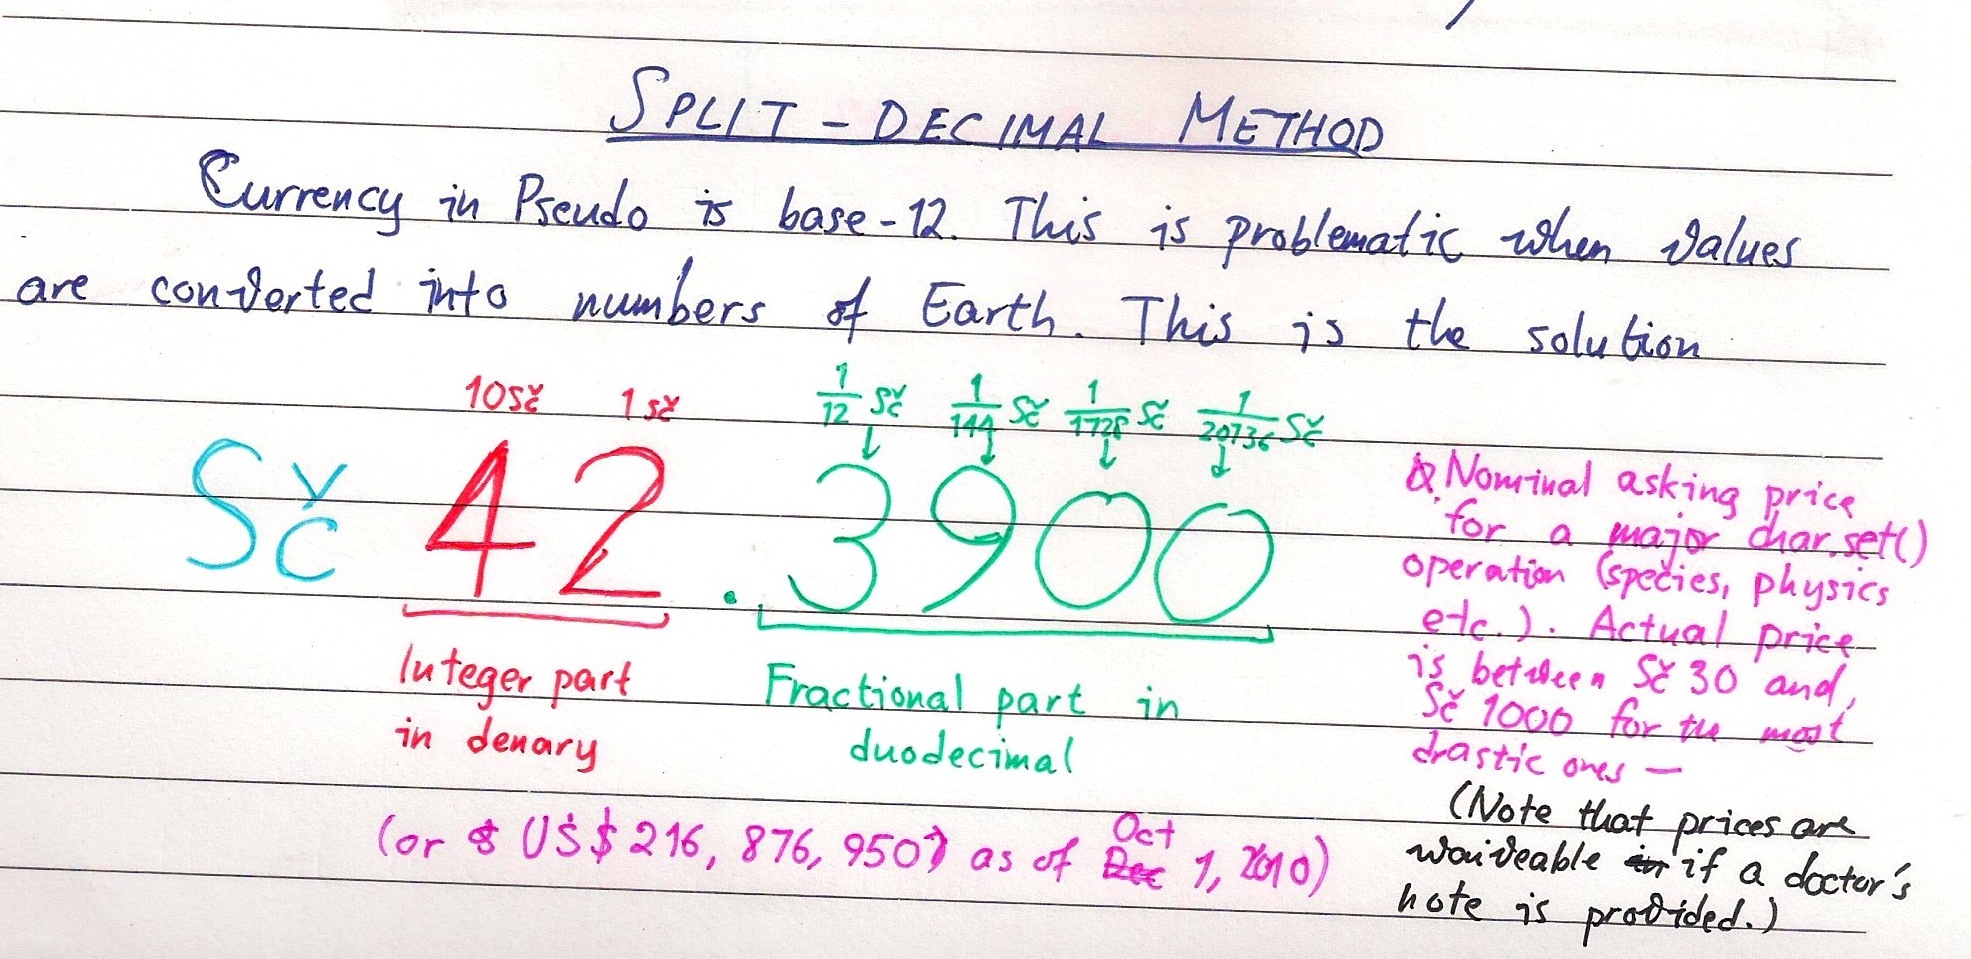 SPLIT-DECIMAL METHOD
Currency in Pseudo is base-12. This is problematic when values
are converted into numbers of Earth. This is the solution
10Sč 1sč 1/12 Sč 1/144 Sč 1/1728 Sč 1/20736 Sč
Sč 42.3900
Integer part
in denary
Fractional part in
duodecimal
Nominal asking price
for a major char.set()
operation (species, physics
etc.). Actual price
is between Sč 30 and
Sč 1000 for the most
drastic ones —
(Note that prices are
waiveable if a doctor's
note is provided.)
(or US$ 216, 876, 950) as of Oct 1, 2010)